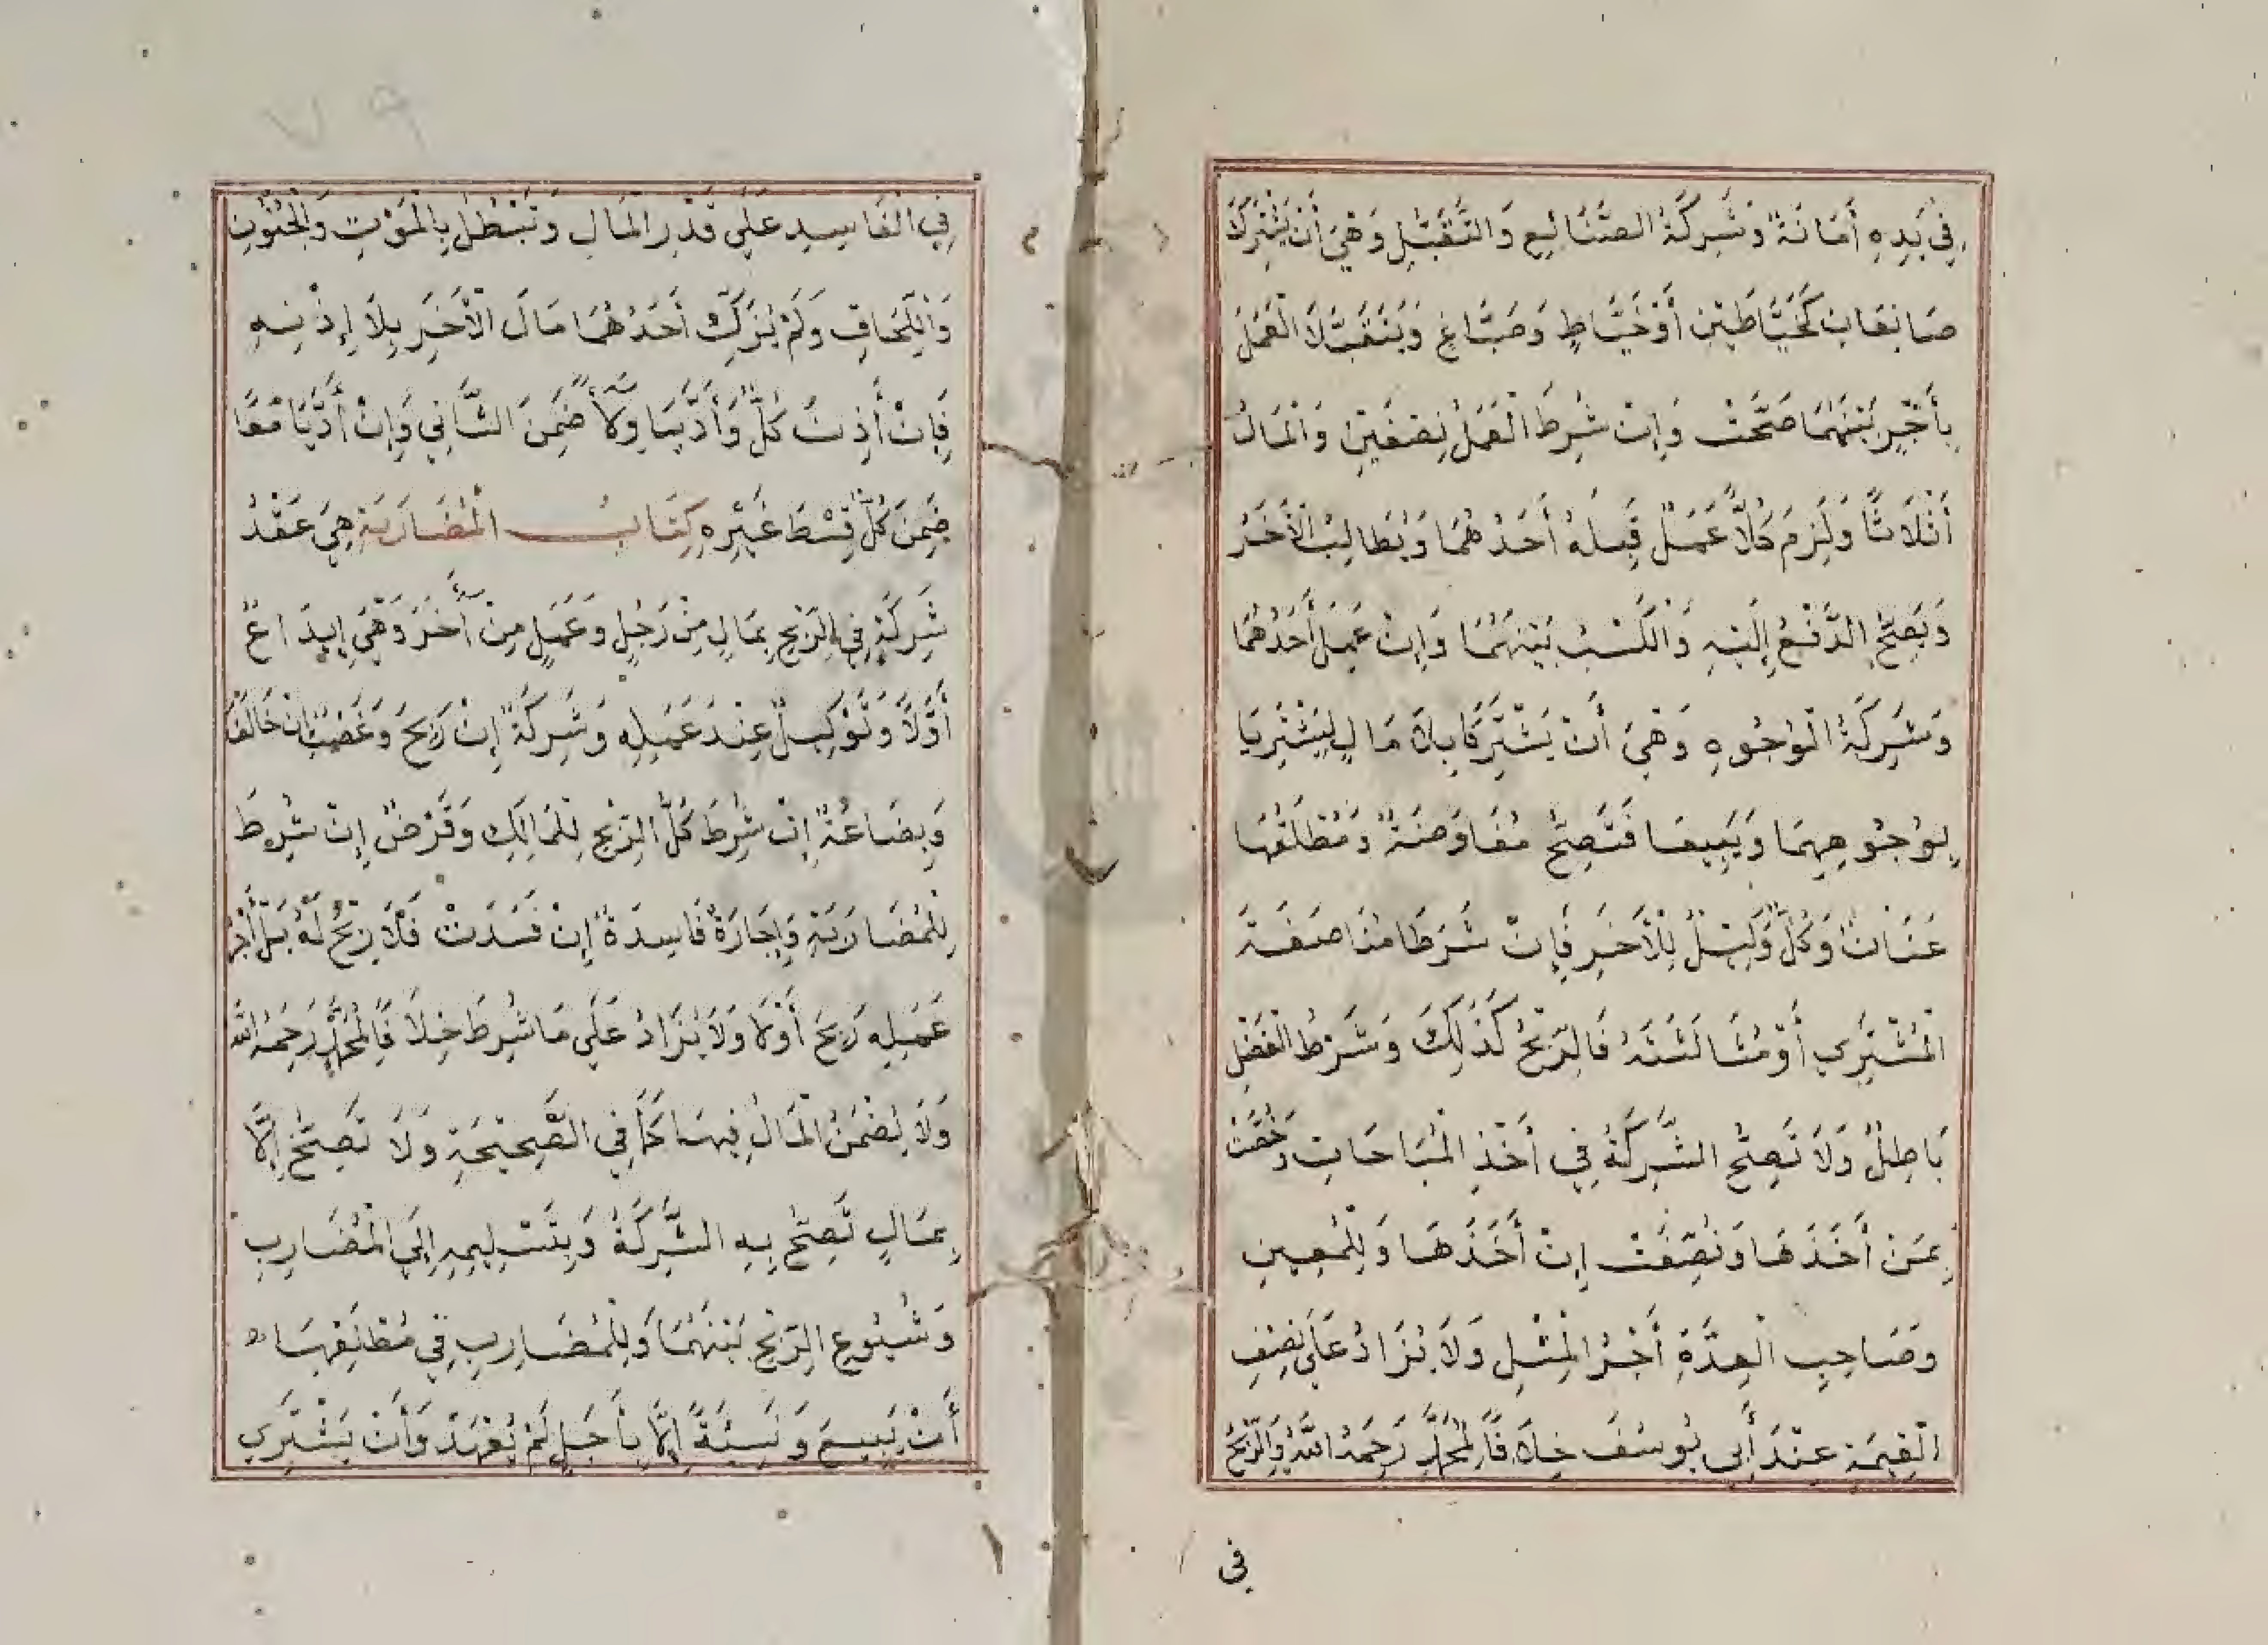 فِي يَدِهِ أَمَانَةٌ وَشَرِكَةُ الصَّنَائِعِ وَالتَّقَبُّلِ وَهِيَ أَنْ يَشْتَرِكَا
صَانِعَانِ كَخَيَّاطَيْنِ أَوْ خَيَّاطٍ وَصَبَّاغٍ وَيَتَقَبَّلَا الْعَمَلَ
بِأَجْرٍ بَيْنَهُمَا صَحَّتْ وَإِنْ شُرِطَ الْعَمَلُ نِصْفَيْنِ وَالْمَالُ
أَثْلَاثًا وَلَزِمَ كُلًّا عَمَلٌ قَبِلَهُ أَحَدُهُمَا وَيُطَالِبُ الْآخَرُ
وَيَصِحُّ الدَّفْعُ إِلَيْهِ وَالْكَسْبُ بَيْنَهُمَا وَإِنْ عَمِلَ أَحَدُهُمَا
وَشَرِكَةُ الْوُجُوهِ وَهِيَ أَنْ يَشْتَرِكَا بِلَا مَالٍ لِيَشْتَرِيَا
بِوُجُوهِهِمَا وَيَبِيعَا فَتَصِحُّ مُفَاوَضَةٌ وَمُطْلَقُهَا
عَنَانٌ وَكُلٌّ وَكِيلٌ لِلْآخَرِ فَإِنْ شَرَطَا مُنَاصَفَةَ
الْمُشْتَرَي أَوْ مُثَالَثَتَهُ فَالرِّبْحُ كَذَلِكَ وَشَرْطُ الْفَضْلِ
بَاطِلٌ وَلَا تَصِحُّ الشَّرِكَةُ فِي أَخْذِ الْمُبَاحَاتِ وَخُصَّتْ
بِمَنْ أَخَذَهَا وَنُصِّفَتْ إِنْ أَخَذَهَا وَلِلْمُعِينِ
وَصَاحِبِ الْعِدَّةِ أَجْرُ الْمِثْلِ وَلَا يُزَادُ عَلَى نِصْفِ
الْقِيمَةِ عِنْدَ أَبِي يُوسُفَ خِلَافًا لِمُحَمَّدٍ رَحِمَهُ اللَّهُ وَالرِّبْحُ
فى
٧٩
فِي الْفَاسِدِ عَلَي قَدْرِ الْمَالِ وَتَبْطُلُ بِالْمَوْتِ وَالْجُنُونِ
وَاللَّحَاقِ وَلَمْ يُزَكِّ أَحَدُهُمَا مَالَ الْآخَرِ بِلَا إِذْنِهِ
فَإِنْ أَذِنَ كُلٌّ وَأَدَّيَا وِلَاءً ضَمِنَ الثَّانِي وَإِنْ أَدَّيَا مَعًا
ضَمِنَ كُلٌّ قِسْطَ غَيْرِهِ كِتَابُ الْمُضَارَبَةِ هِيَ عَقْدُ
شَرِكَةٍ فِي الرِّبْحِ بِمَالٍ مِنْ رَجُلٍ وَعَمَلٍ مِنْ آخَرَ وَهِيَ إِيدَاعٌ
أَوَّلًا وَتَوْكِيلٌ عِنْدَ عَمَلِهِ وَشَرِكَةٌ إِنْ رَبِحَ وَغَصْبٌ إِنْ خَالَفَ
وَبِضَاعَةٌ إِنْ شُرِطَ كُلُّ الرِّبْحِ لِلْمَالِكِ وَقَرْضٌ إِنْ شُرِطَ
لِلْمُضَارَبَةِ وَإِجَارَةٌ فَاسِدَةٌ إِنْ فَسَدَتْ فَلَا رِبْحُ لَهُ بَلْ أَجْرُ
عَمَلِهِ رَبِحَ أَوْ لَا وَلَا يُزَادُ عَلَي مَا شُرِطَ خِلَافًا لِمُحَمَّدٍ رَحِمَهُ اللَّهُ
وَلَا يُضْمَنُ الْمَالُ فِيهَا كَمَا فِي الصَّحِيحَةِ وَلَا تَصِحُّ إِلَّا
بِمَالٍ تَصِحُّ بِهِ الشَّرِكَةُ وَبِتَسْلِيمِهِ إِلَي الْمُضَارِبِ
وَشُيُوعِ الرِّبْحِ بَيْنَهُمَا وَلِلْمُضَارِبِ فِي مُطْلَقِهَا
أَنْ يَبِيعَ وَنَسِئَةً إِلَّا بِأَجَلٍ لَمْ يُعْهَدْ وَأَنْ يَشْتَرِي